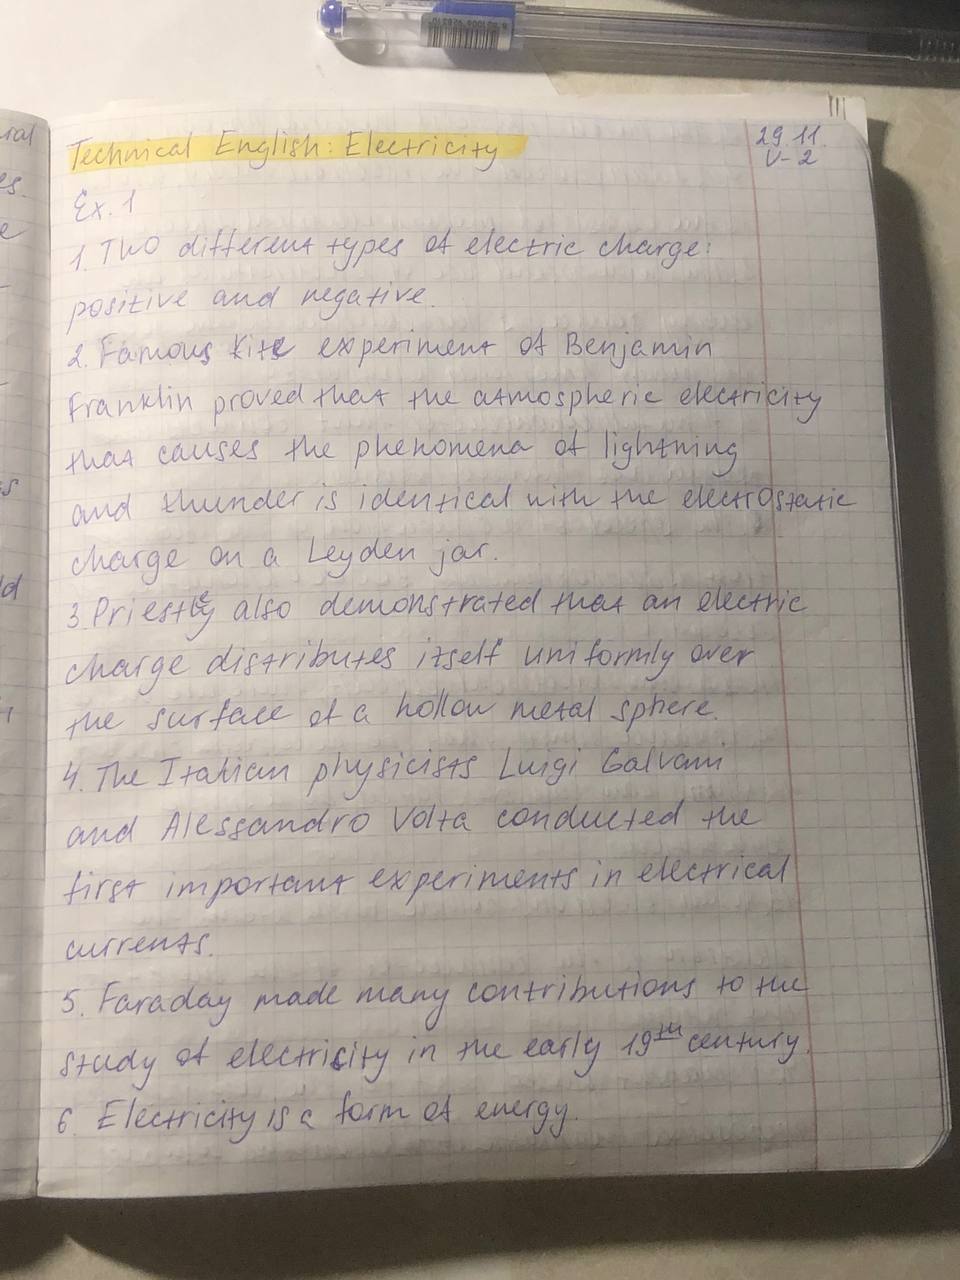 Technical English: Electricity
29.11.
V-2
Ex. 1
1. Two different types of electric charge:
positive and negative.
2. Famous Kite experiment of Benjamin
Franklin proved that the atmospheric electricity
that causes the phenomena of lightning
and thunder is identical with the electrostatic
charge on a Leyden jar.
3. Priestley also demonstrated that an electric
charge distributes itself uniformly over
the surface of a hollow metal sphere.
4. The Italian physicists Luigi Galvani
and Alessandro Volta conducted the
first important experiments in electrical
currents.
5. Faraday made many contributions to the
study of electricity in the early 19th century.
6. Electricity is a form of energy.